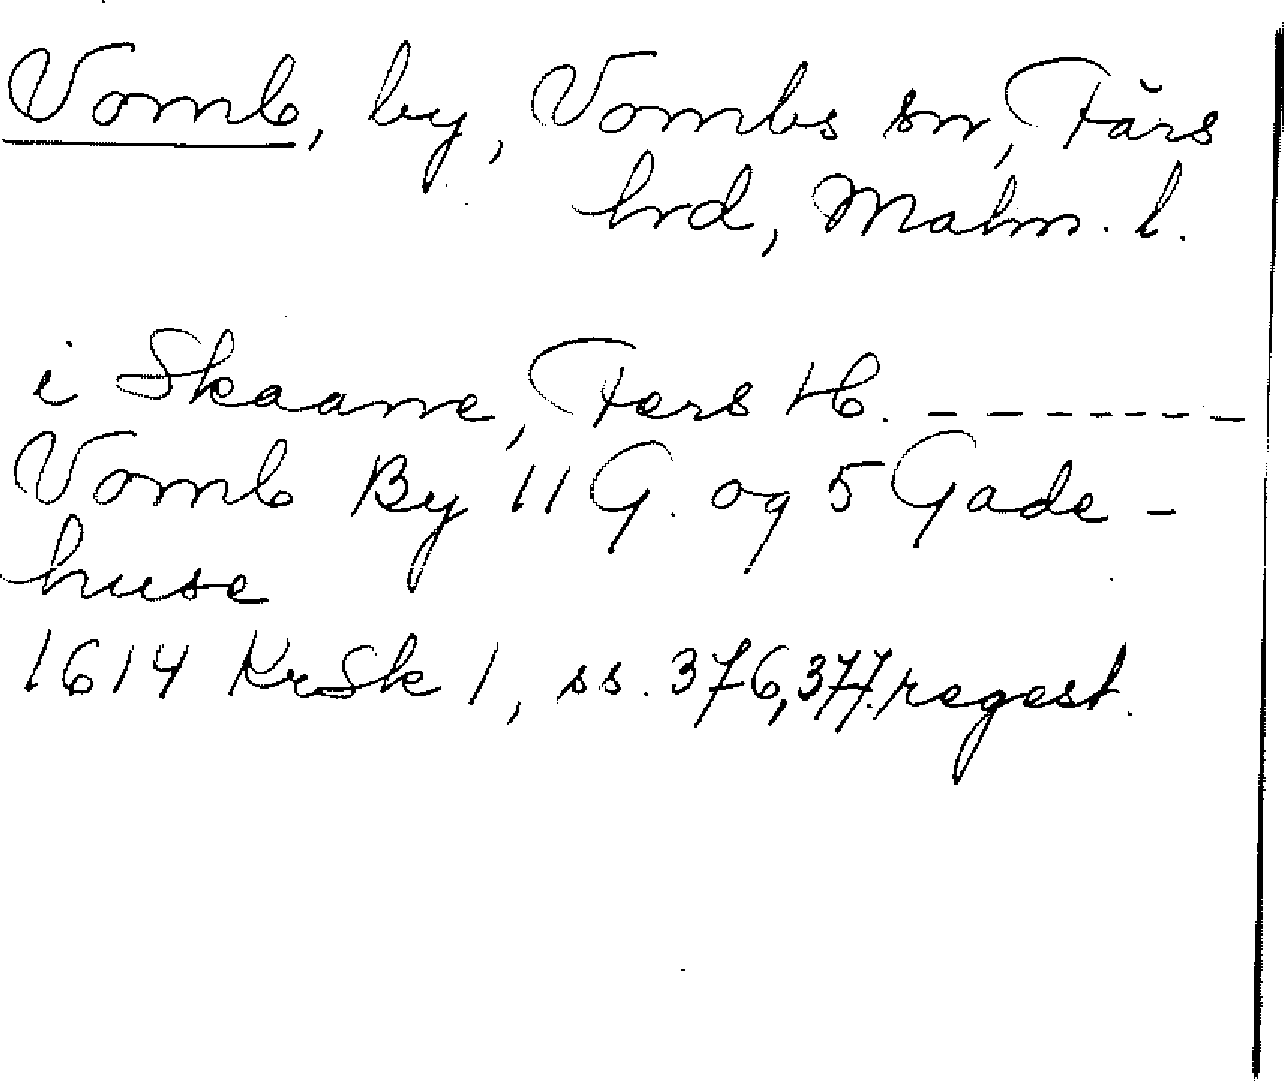 Vomb, by, Vombs sn, Färs
hrd, Malm. l.
i Skaane, Fers H. - - - - - - -
Vomb By 11 G. og 5 Gade-
huse
1614 KrSk 1, ss. 376, 377. regest.